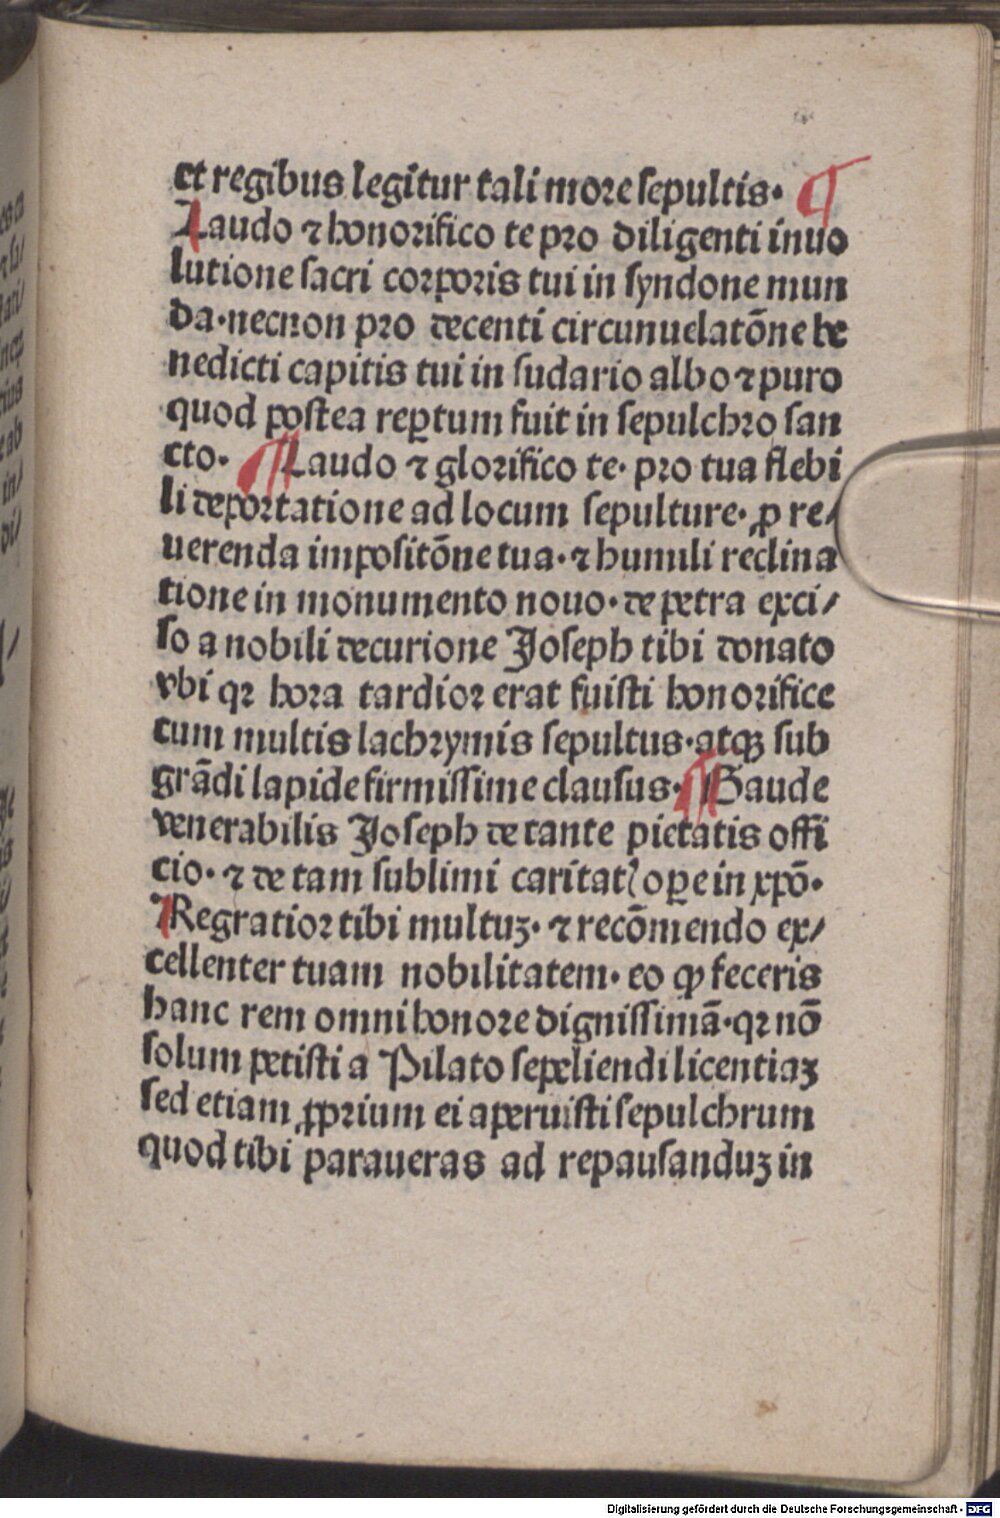 et regibus legitur tali more sepultis. ¶
Laudo ⁊ honorifico te pro diligenti inuo
lutione sacri corporis tui in syndone mun
da·necnon pro decenti circunuelatōne be
nedicti capitis tui in sudario albo ⁊ puro
quod postea reꝑtum fuit in sepulchro san
cto· ¶ Laudo ⁊ glorifico te· pro tua flebi
li deportatione ad locum sepulture· ꝓ re/
uerenda impositōne tua· ⁊ humili reclina
tione in monumento nouo· de petra exci/
so a nobili decurione Joseph tibi donato
vbi qꝛ hora tardior erat fuisti honorifice
cum multis lachrymis sepultus·atqꝫ sub
grādi lapide firmissime clausus· ¶ Gaude
venerabilis Joseph de tante pietatis offi
cio· ⁊ de tam sublimi caritatꝭ oꝑe in xpō·
Regratior tibi multuꝫ· ⁊ recōmendo ex/
cellenter tuam nobilitatem· eo ꝙ feceris
hanc rem omni honore dignissimā·qꝛ nō
solum petisti a Pilato sepeliendi licentiaꝫ
sed etiam ꝓprium ei aperuisti sepulchrum
quod tibi paraueras ad repausanduꝫ in
Digitalisierung gefördert durch die Deutsche Forschungsgemeinschaft - DFG